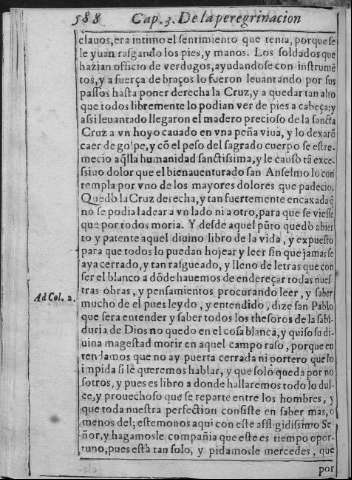 588 Cap. 3. De la peregrinacion
clauos, era intimo el sentimiento que tenia, porque se
le yuan rasgando los pies, y manos. Los soldados que
hazian officio de verdugos, ayudandose con instrumẽ
tos, y a fuerça de braços lo fueron leuantando por sus
passos hasta poner derecha la Cruz, y a quedar tan alto
que todos libremente lo podian ver de pies a cabeça; y
assi leuantado llegaron el madero precioso de la sancta
Cruz a vn hoyo cauado en vna peña viua, y lo dexarõ
caer de golpe, y cõ el peso del sagrado cuerpo se estre-
mecio aq̃lla humanidad sanctissima, y le causo tã exce-
ssiuo dolor que el bienauenturado san Anselmo lo con
templa por vno de los mayores dolores que padecio.
Quedò la Cruz derecha, y tan fuertemente encaxada q̃
no se podia ladear a vn lado ni a otro, para que se viesse
que por todos moria. Y desde aquel pũto quedò abier
to y patente aquel diuino libro de la vida, y expuesto
para que todos lo puedan hojear y leer sin que jamas se
aya cerrado, y tan rasgueado, y lleno de letras que con
ser el blanco a dõde hauemos de endereçar todas nues
tras obras, y pensamientos procurando leer, y saber
Ad Col. 2.
mucho de el pues leydo, y entendido, dize san Pablo
que sera entender y saber todos los thesoros de la sabi-
duria de Dios no quedo en el cosa blanca, y quiso su di
uina magestad morir en aquel campo raso, porque en
tendamos que no ay puerta cerrada ni portero que lo
impida si le queremos hablar, y que solo queda por no
sotros, y pues es libro a donde hallaremos todo lo dul-
ce, y prouechoso que se reparte entre los hombres, y
que toda nuestra perfection consiste en saber mas, o
menos del; estemonos aqui con este affligidissimo Se
ñor, y hagamosle compañia que este es tiempo opor-
tuno, pues està tan solo, y pidamosle mercedes, que
por